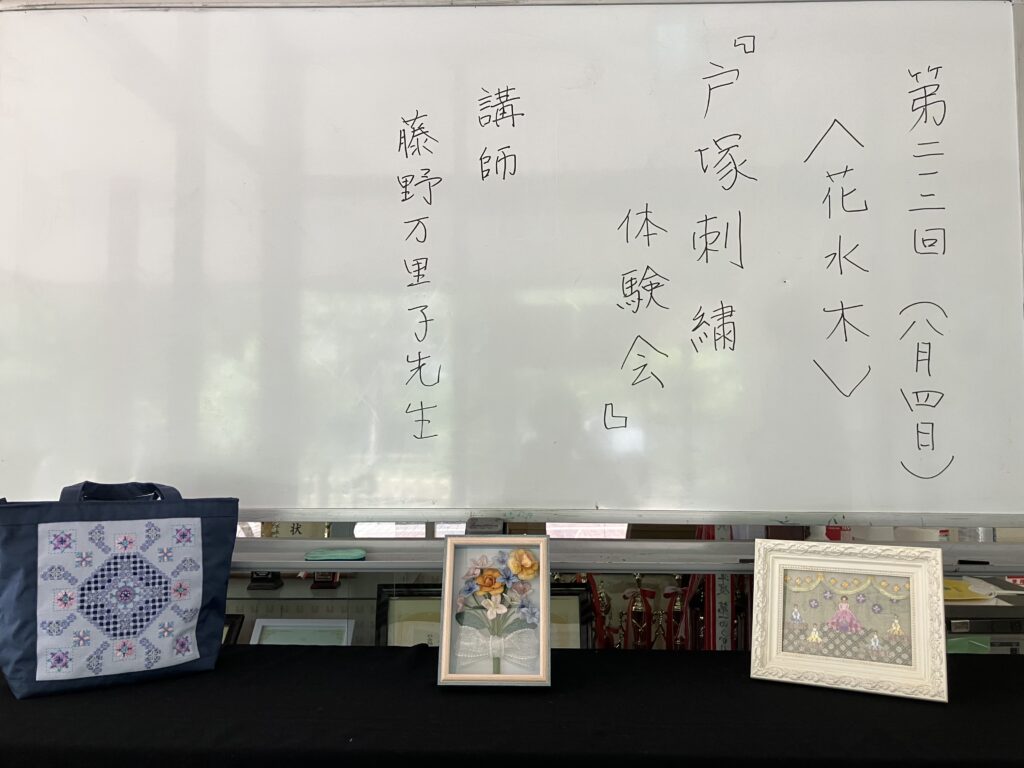 第二三回（八月四日）
〈花水木〉
『戸塚刺繍
体験会』
講師
藤野万里子先生
状